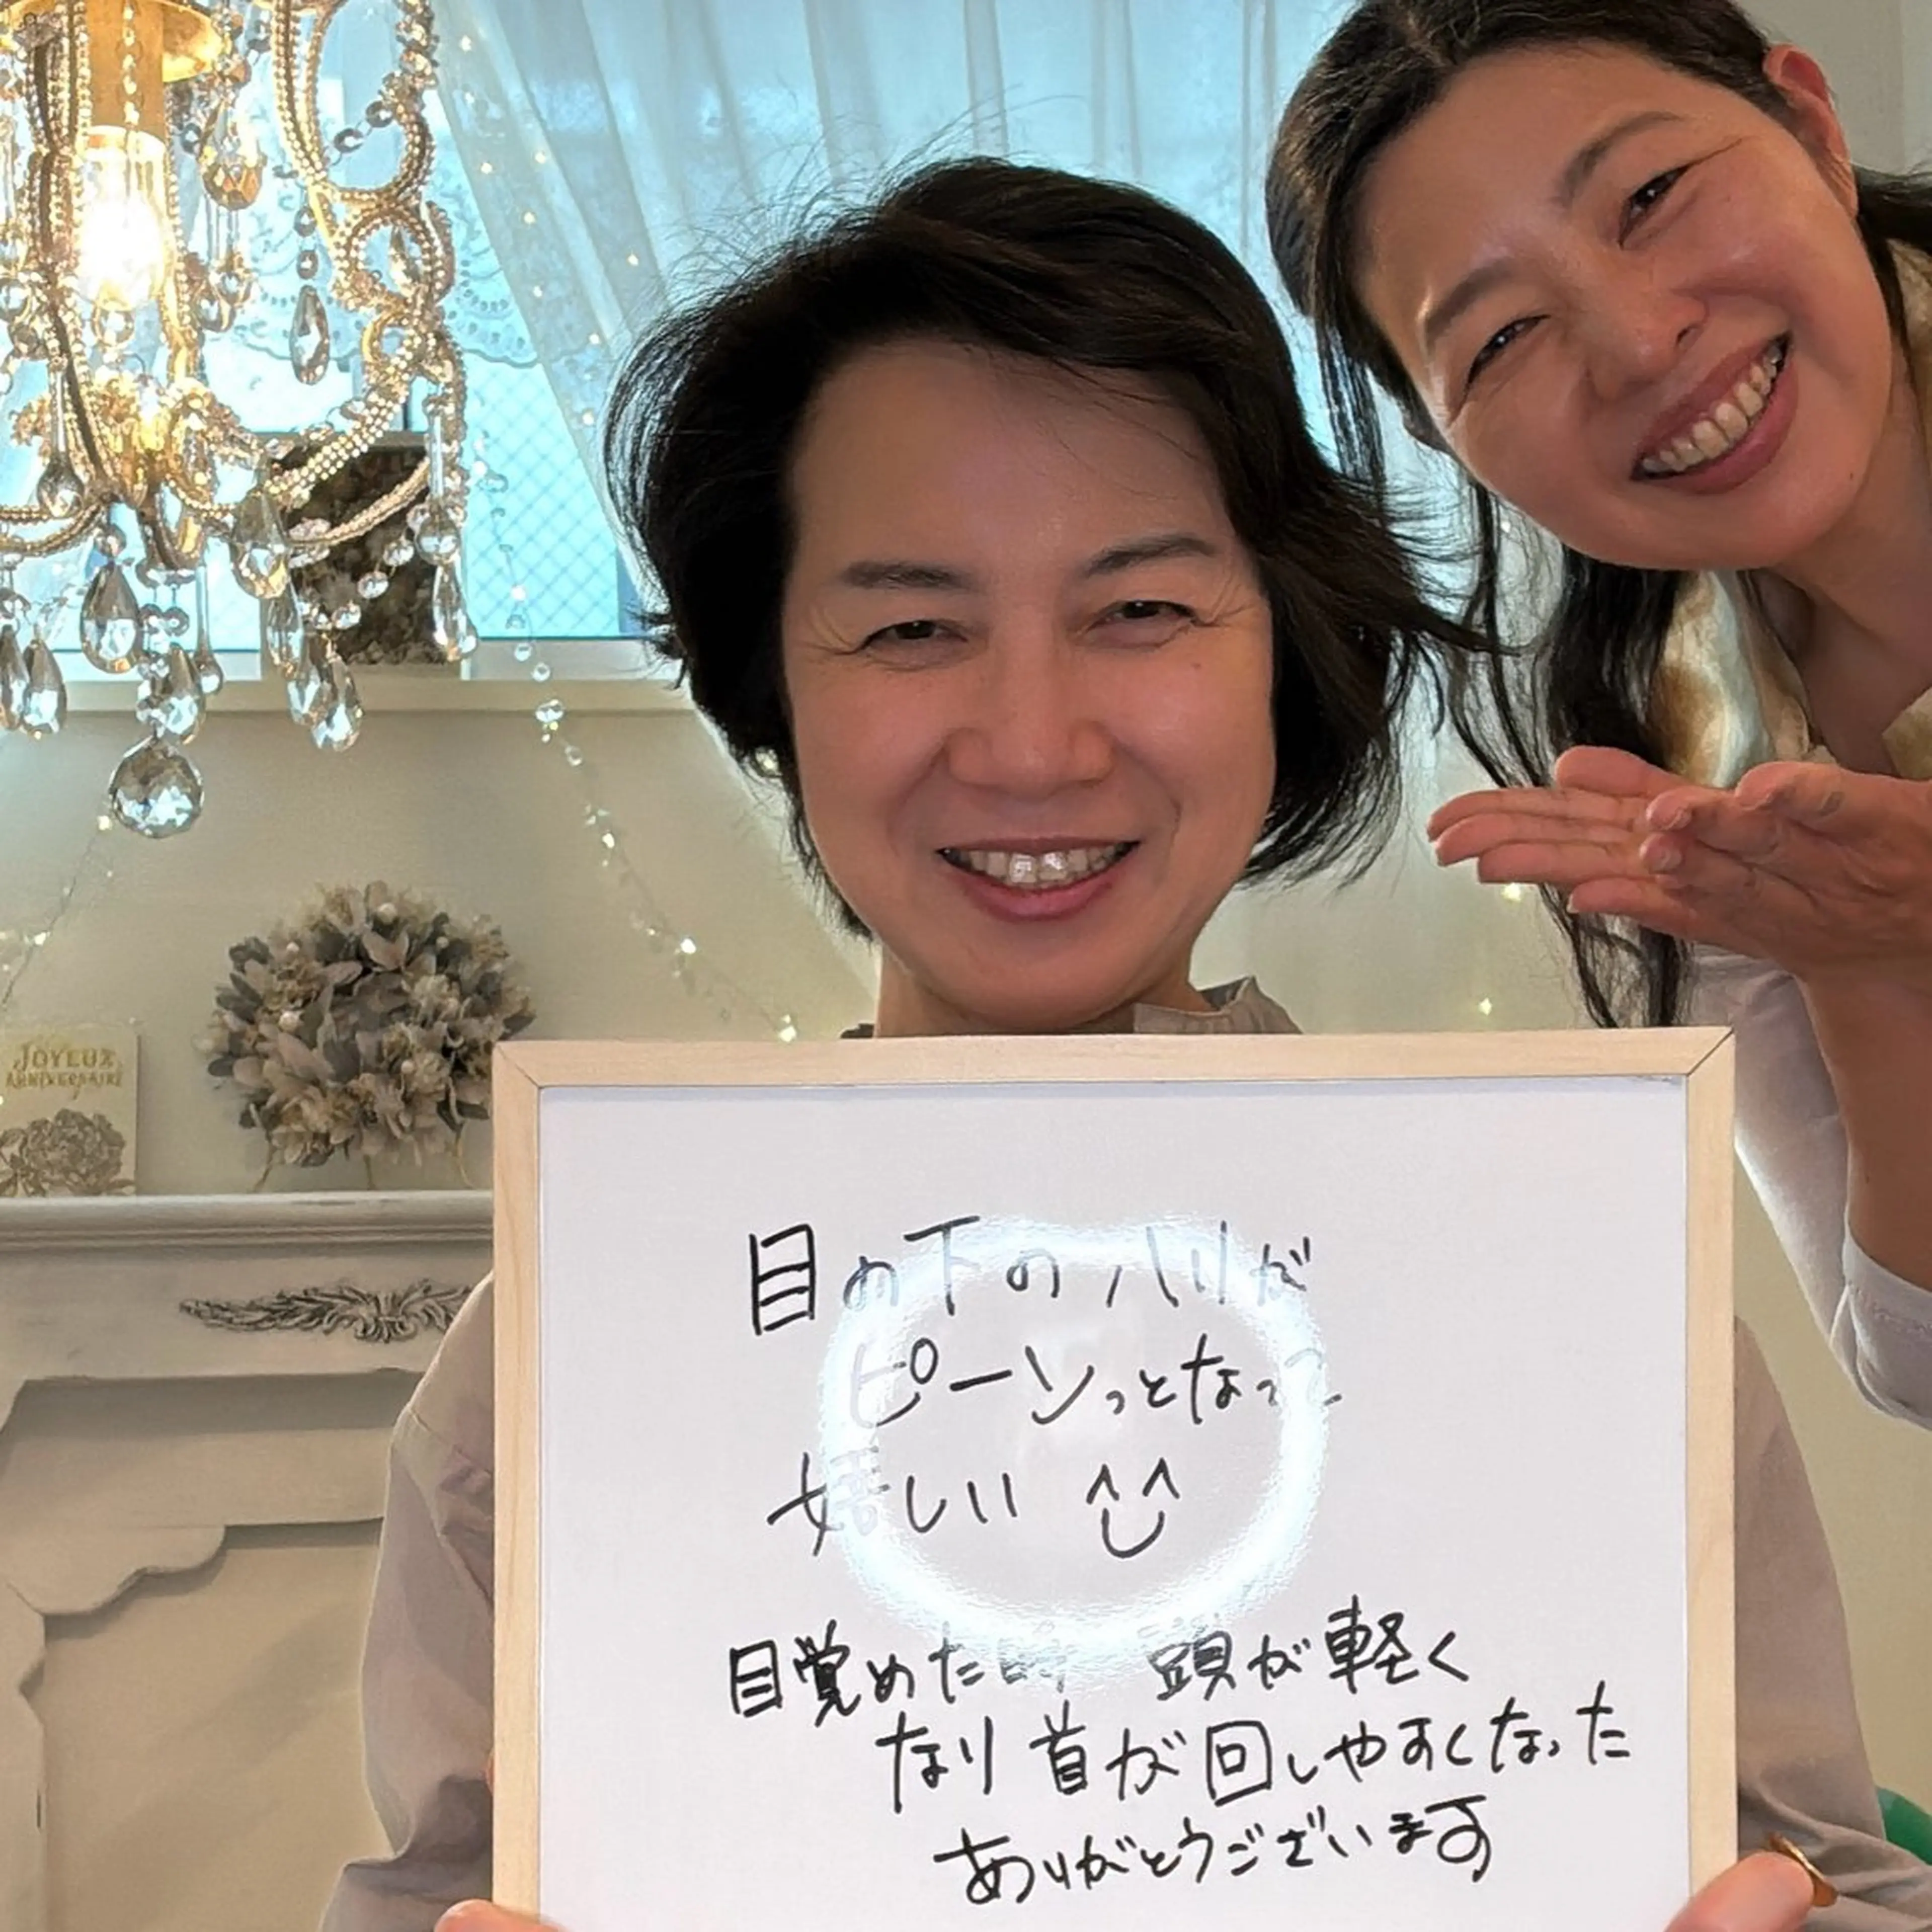 JOYEUX
ANNIVERSAIRE
目の下のハリが
ピーンっとなって
嬉しい
目覚めた時 頭が軽く
なり首が回しやすくなった
ありがとうございます